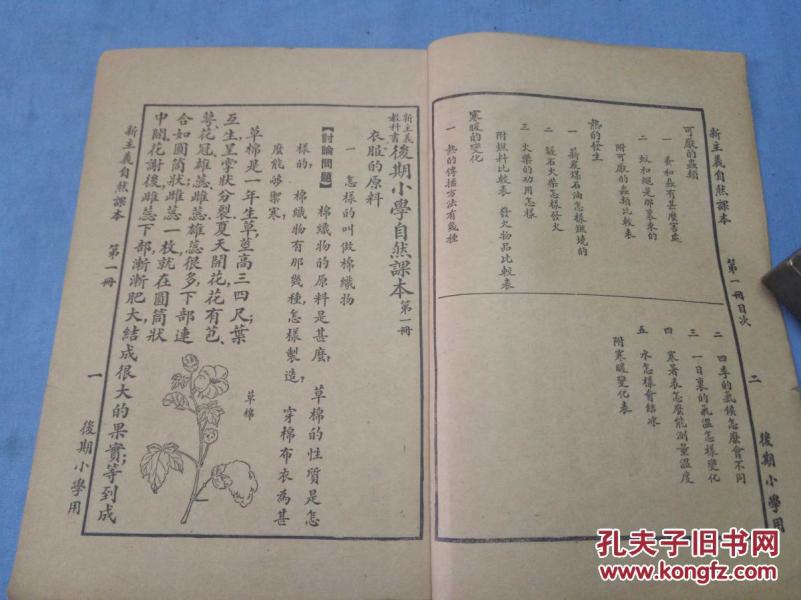 新主義自然課本 第一冊目次 二 後期小學用
可厭的蟲類
一 蚤和蝨有甚麽害處
二 蚊和蠅是那裏來的
附可厭的蟲類比較表
熱的發生
一 薪炭煤石油怎樣燃燒的
二 燧石火柴怎樣發火
三 火藥的功用怎樣
附燃料比較表 發火物品比較表
寒暖的變化
一 熱的傳播方法有幾種
二 四季的氣候怎麽會不同
三 一日裏的氣溫怎樣變化
四 寒暑表怎麽能測量溫度
五 水怎樣會結冰
附寒暖變化表
新主義教科書 後期小學自然課本 第一冊
衣服的原料
一 怎樣的叫做棉織物
【討論問題】 棉織物的原料是甚麽, 草棉的性質是怎
樣的, 棉織物有那幾種,怎樣製造, 穿棉布衣為甚
麽能够禦寒,
草棉是一年生草,莖高三四尺;葉
互生,呈掌狀分裂,夏天開花,花有苞、
萼、花冠、雄蕊、雌蕊,雄蕊很多,下部連
合如圓筒狀,雌蕊一枚,就在圓筒狀
中間,花謝後,雌蕊下部漸漸肥大,結成很大的果實;等到成
草棉
新主義自然課本 第一冊 一 後期小學用
孔夫子旧书网
KONGFZ.COM